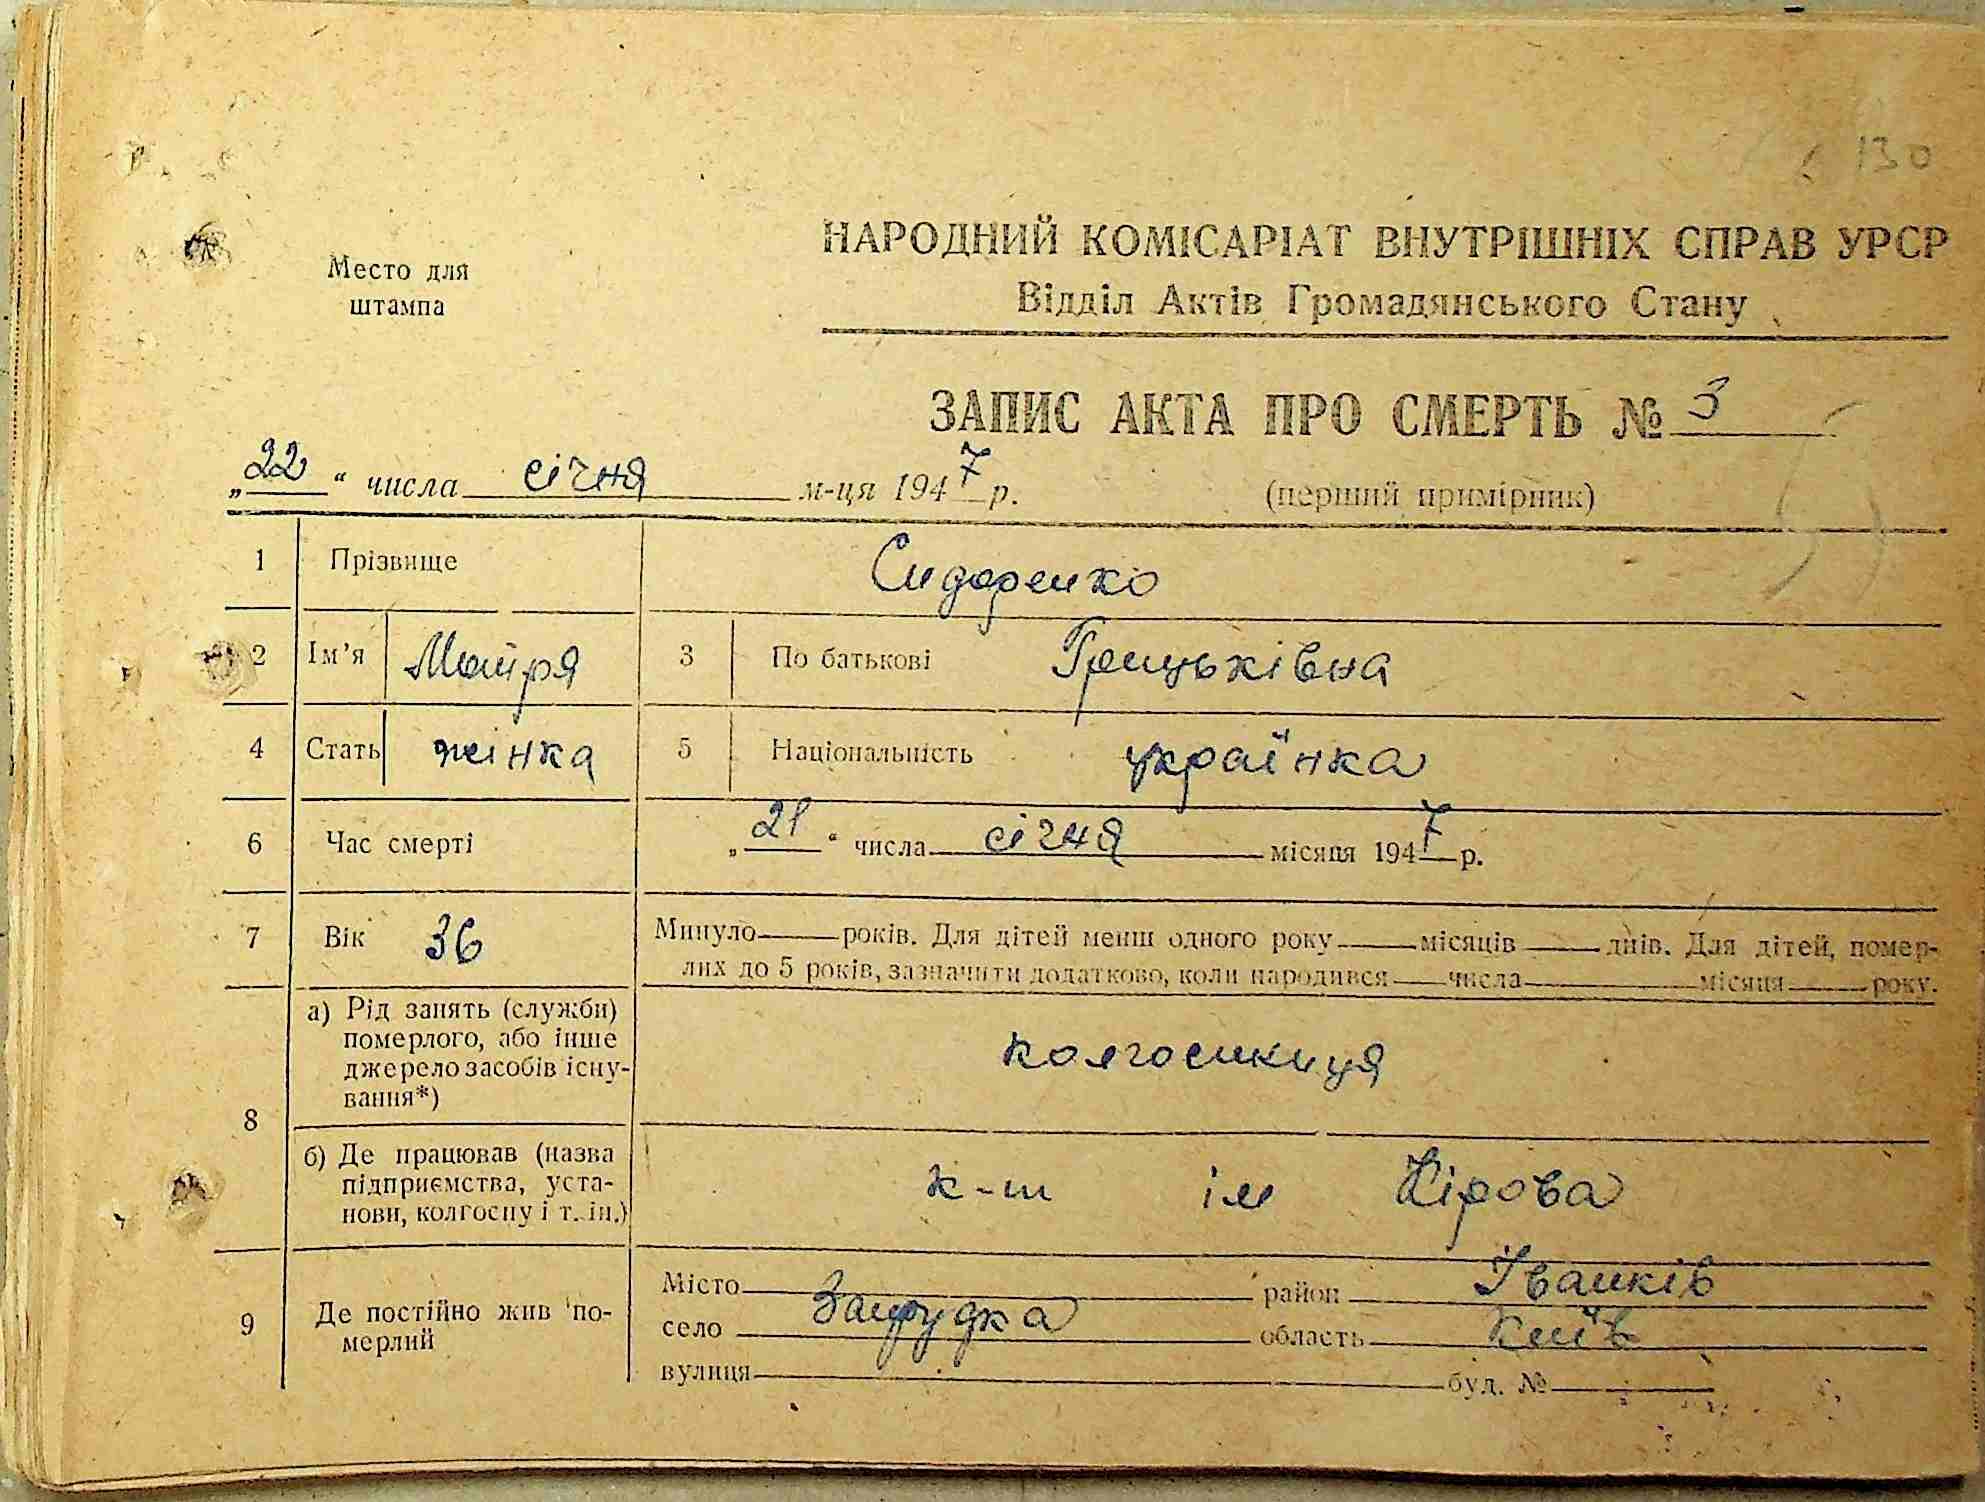 130
Место для
штампа
НАРОДНИЙ КОМІСАРІАТ ВНУТРІШНІХ СПРАВ УРСР
Відділ Актів Громадянського Стану
ЗАПИС АКТА ПРО СМЕРТЬ № 3
„22“ числа січня м-ця 1947 р. (перший примірник)
1 Прізвище Сидоренко
2 Ім'я Мотря 3 По батькові Грицьківна
4 Стать жінка 5 Національність українка
6 Час смерті „21“ числа січня місяця 1947 р.
7 Вік 36 Минуло роких. Для дітей менш одного року місяців днів. Для дітей, помер-
лих до 5 років, зазначити додатково, коли народився числа місяця року.
8 а) Рід занять (служби)
померлого, або інше
джерело засобів існу-
вання*)
колгоспниця
б) Де працював (назва
підприємства, уста-
нови, колгоспу і т. ін.)
к-п ім Кірова
9 Де постійно жив по-
мерлий
Місто район Іванків
село Запрудка область Київ
вулиця буд. №